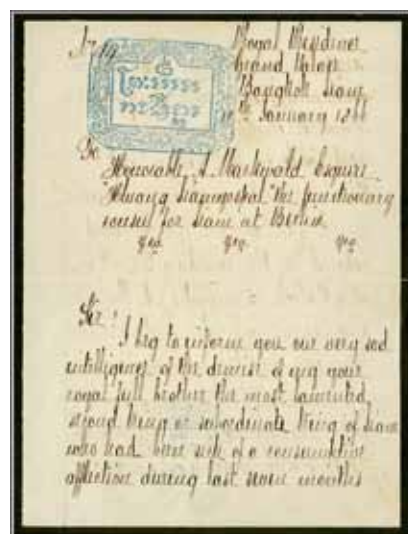 Royal Residence
Grand Palace
Bangkok Siam
January 1866
To
Honorable A. Markwald Esquire
the functionary
consul for Siam at Berlin
Sir!
I beg to inform you our very sad
intelligence of the demise of
royal full brother the most lamented
second King or subordinate King of Siam
who had been sick of a consumptive
affliction during last months